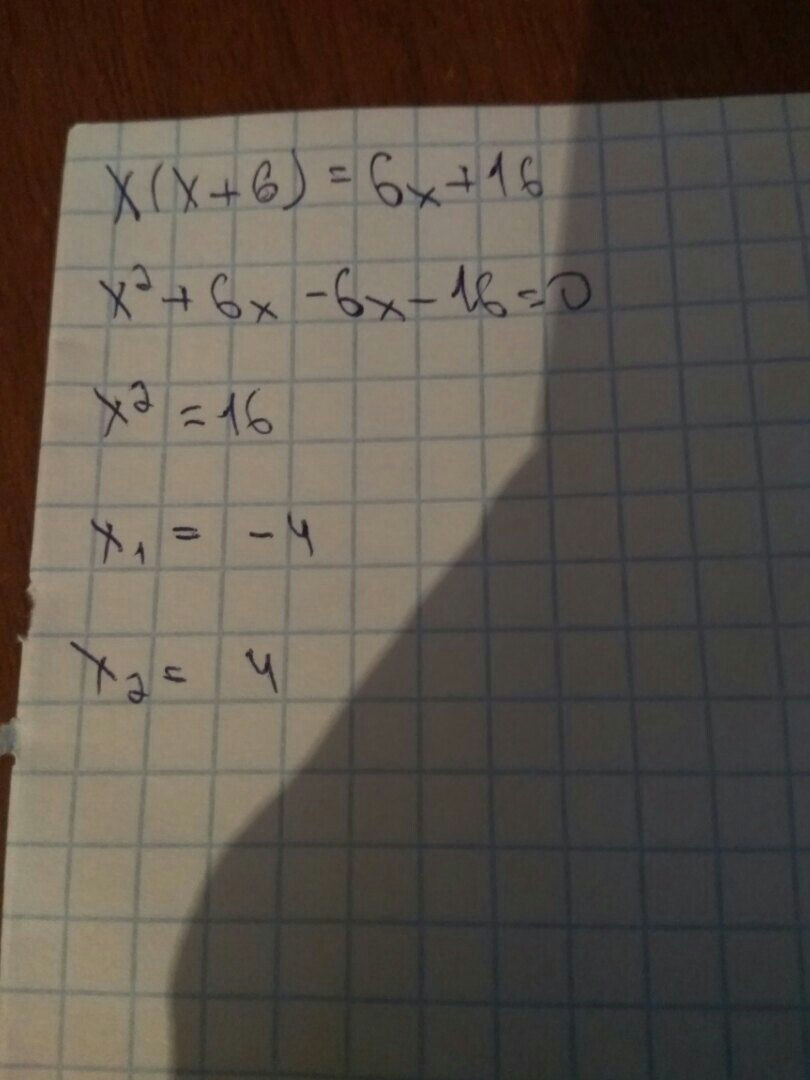 x(x+6) = 6x+16
x² + 6x - 6x - 16 = 0
x² = 16
x₁ = -4
x₂ = 4